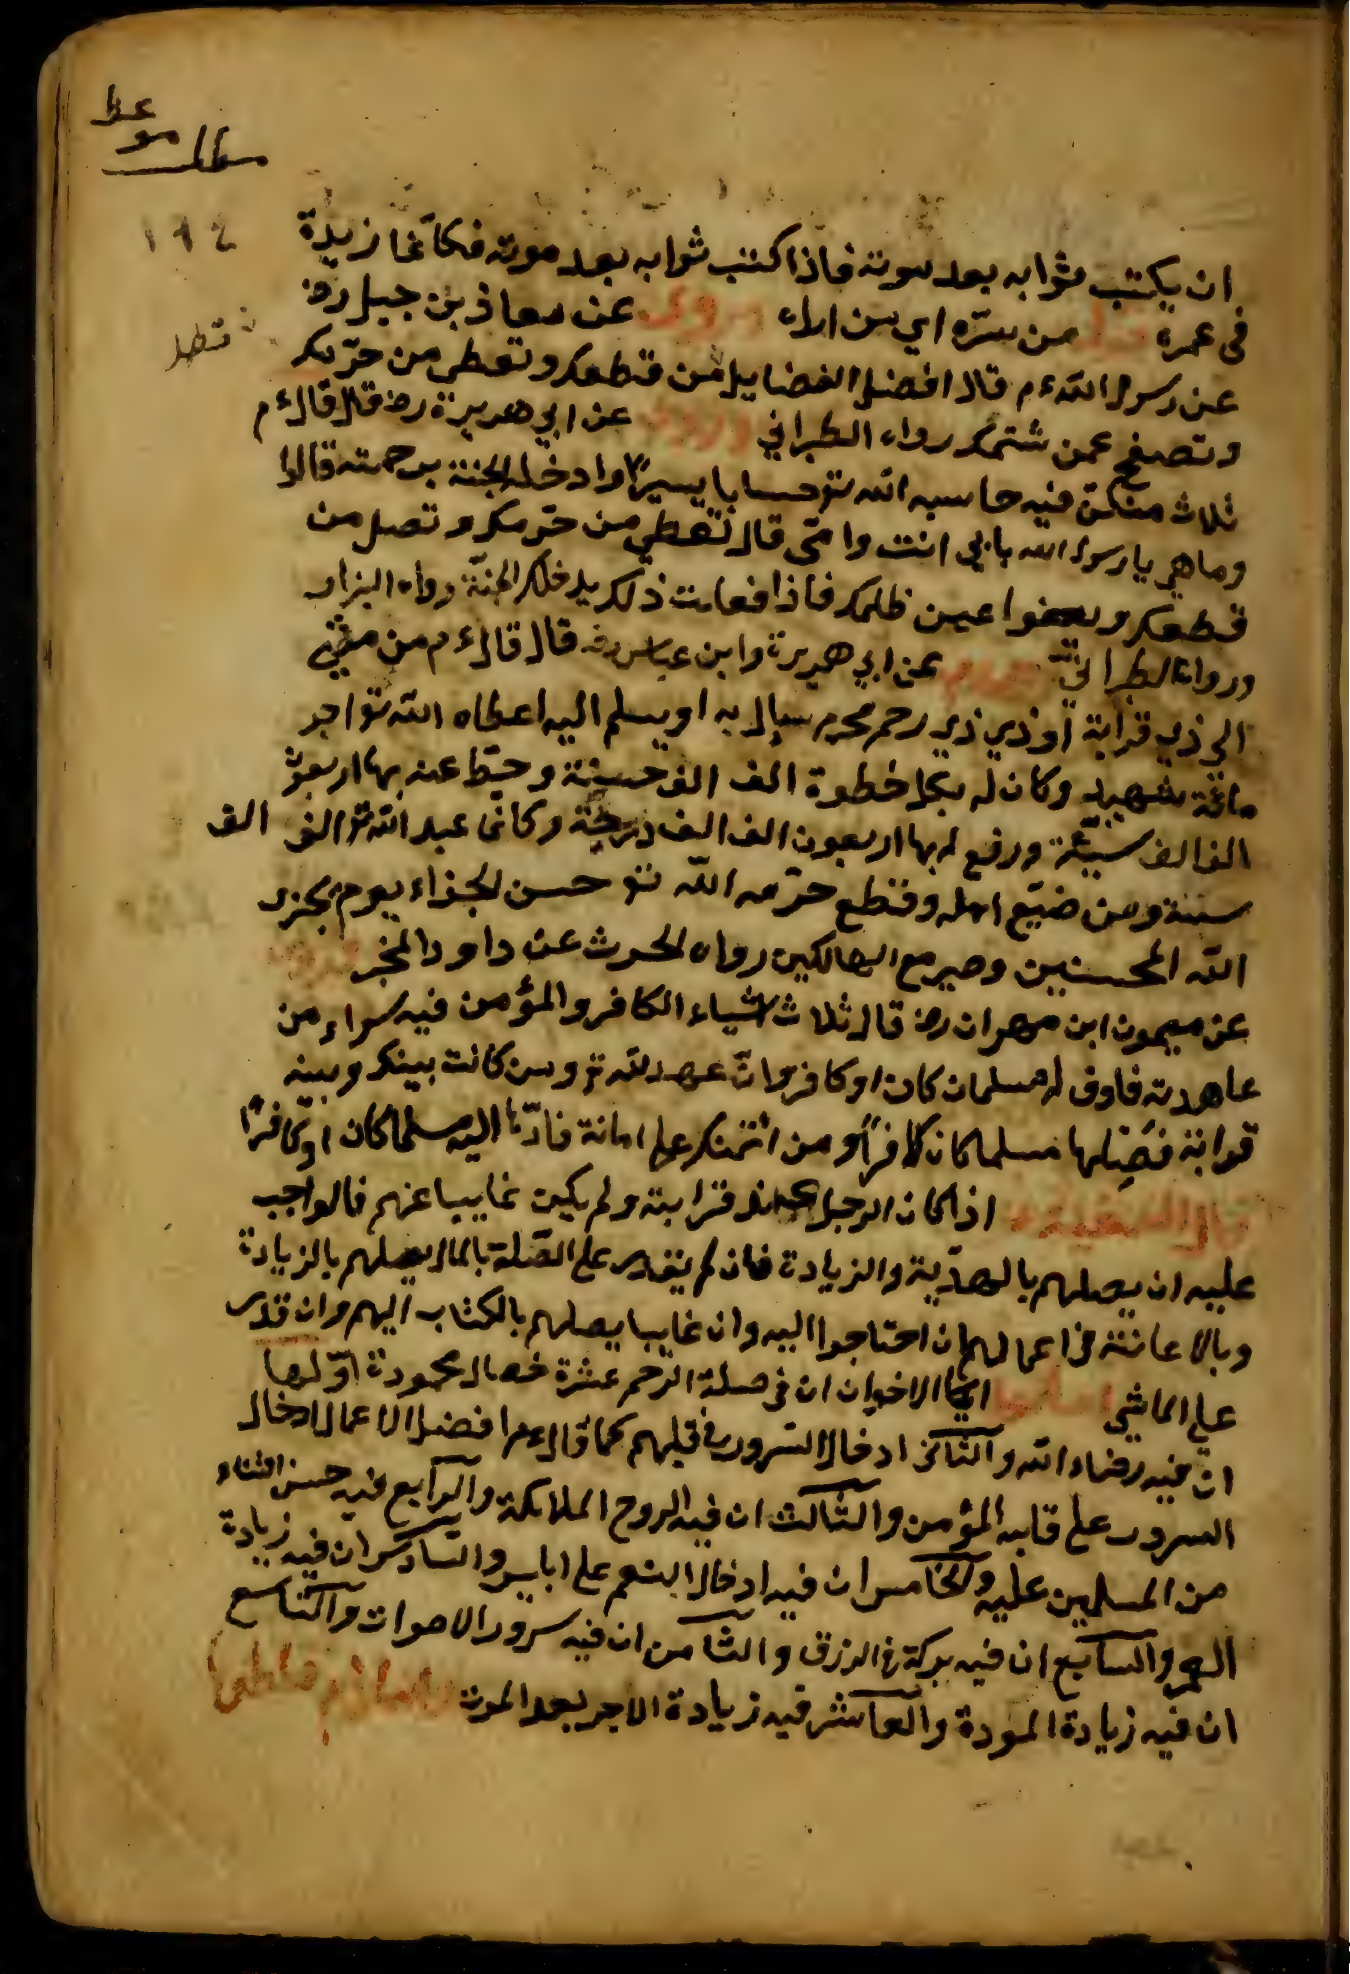 ان يكتب ثوابه بعد موته فاذا كتب ثوابه بعد موته فكأنما زيدة
فى عمره قوله من سرّه اي من اراد وروى عن معاذ بن جبل رض
عن رسول الله ءم قال افضل الفضايل من قطعك وتعطى من حرّمك
وتصفح عمن شتمك رواه الطبراني وروى عن ابي هريرة رض قال قال ءم
ثلاث من كنّ فيه حاسبه الله تع حسابا يسيرًا وادخله الجنة برحمته قالوا
وما هي يا رسول الله بابى انت وامّى قال تعطي من حرّمك وتصل من
قطعك ويعفوا عمن ظلمك فاذا فعلت ذلك يدخلك الجنّة رواه البزار
ورواه الطبراني عن ابي هريرة وابن عباس رض قال قال ءم من مشى
الى ذي قرابة او ذي ذي رحم محرم يسال به او يسلم اليه اعطاه الله تع اجر
مائة شهيد وكان له بكل خطوة الف الف حسنة وحطّ عنه بها اربعون
الف الف سيئة ورفع له بها اربعون الف الف درجة وكانما عبد الله تع الف الف
سنة ومن ضيّع اهله وقطع حرّمه الله تع حسن الجزاء يوم يجزى
الله المحسنين وصير مع الهالكين رواه الحرث عن داود المخبر
عن ميمون ابن مهران رض قال ثلاث اشياء الكافر والمؤمن فيه سواء من
عاهدته فاوف له مسلمان كان او كافر وانّ عهد لله تع ومن كانت بينك وبينه
قرابة فصِلها مسلما كان كافرًا ومن ائتمنك على امانة فادّها اليه مسلما كان او كافرًا
قال الفقيه اذا كان الرجل عند قرابته ولم يكن غايبا عنهم فالواجب
عليه ان يصلهم بالهديّة والزيادة فان لم يقدر على الصّلة بالمال يصلهم بالزيادة
وبالاعانة فى اعمالهم ان احتاجوا اليه وان غايبا يصلهم بالكتاب اليهم وان قدر
على الماشي ايها الاخوان ان فى صلة الرحم عشرة خصال محمودة اوّلها
ان فيه رضاء الله والثاني ادخال السّرور فى قبلهم كما قال ءم افضل الاعمال ادخال
السرور على قلب المؤمن والثالث ان فيه الروح الملائكة والرابع فيه حسن الثناء
من المسلمين عليه والخامس ان فيه ادخال الغم على ابليس والسادس ان فيه زيادة
العمر والسابع ان فيه بركة فى الرزق والثامن ان فيه سرور الاموات والتاسع
ان فيه زيادة المودة والعاشر فيه زيادة الاجر بعد الموت
١٩٤